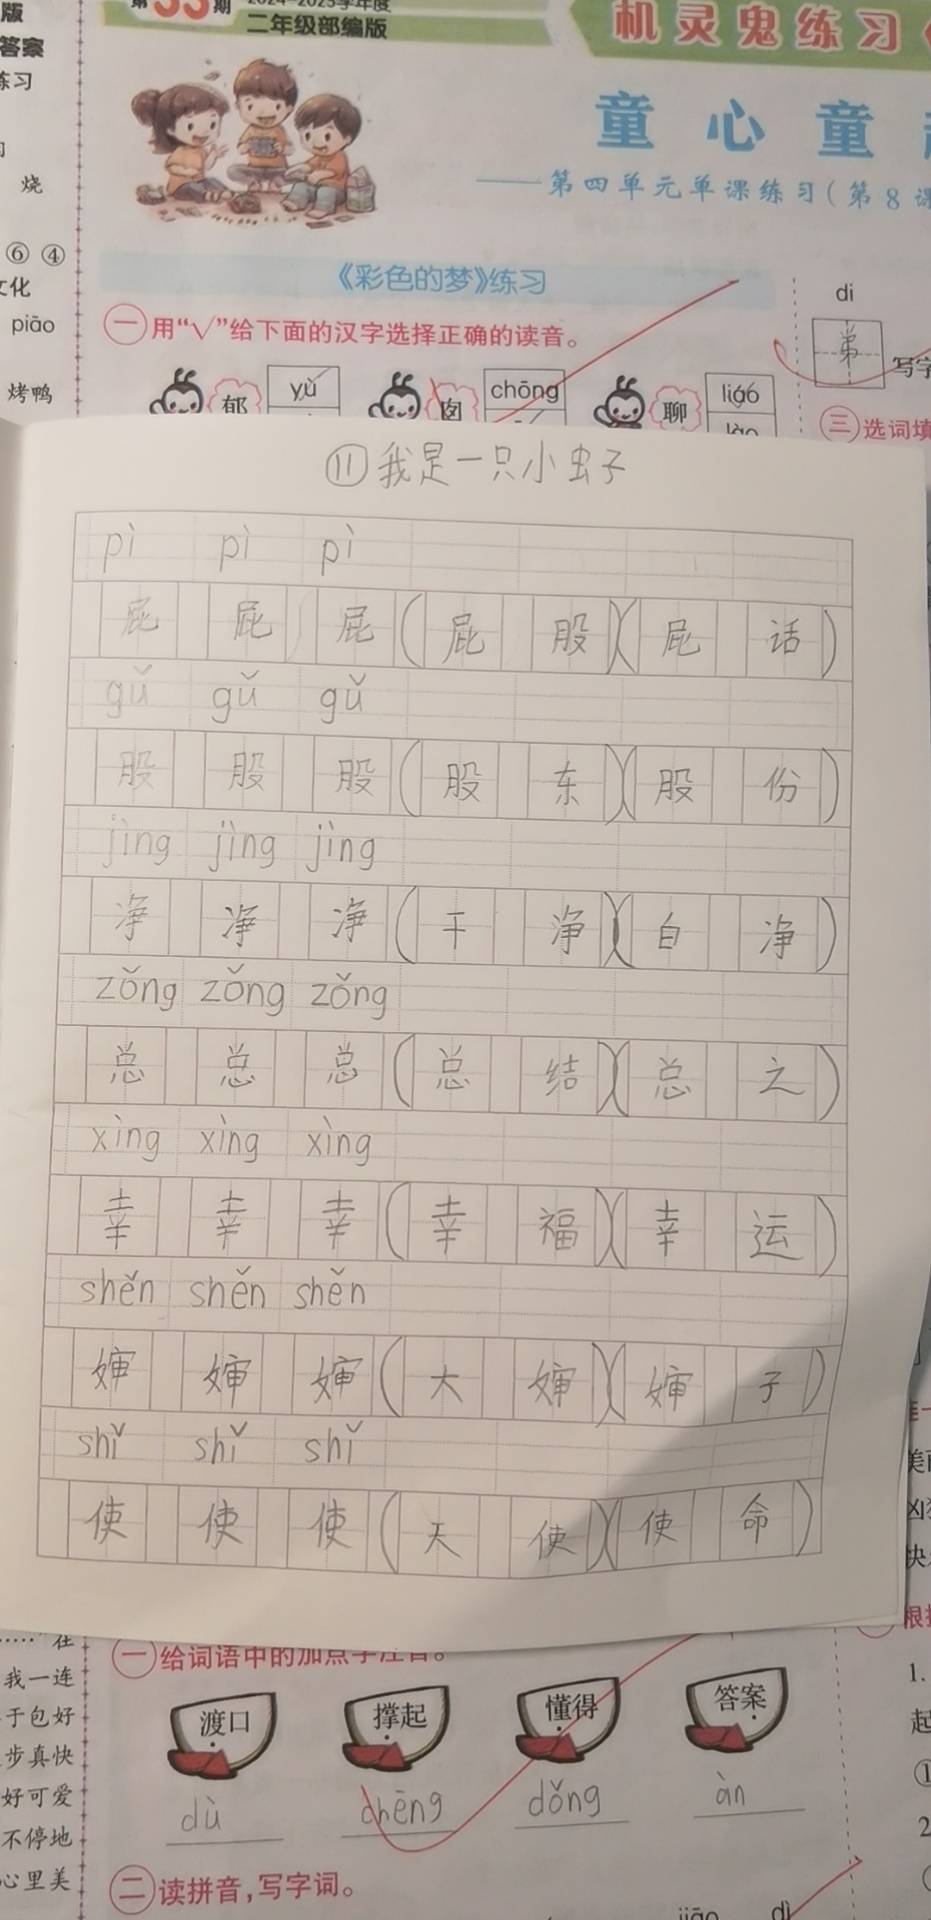 版
答案
练习
烧
⑥ ④
文化
piāo
烤鸭
2024-2025学年度
二年级部编版
机灵鬼练习
童心童
——第四单元单课练习(第8课
《彩色的梦》练习
一 用“√”给下面的汉字选择正确的读音。
郁 yù
囱 chōng
聊 liáo
dì
第
写字
三 选词填
⑪我是一只小虫子
pì pì pì
屁 屁 屁 (屁股)(屁话)
gǔ gǔ gǔ
股 股 股 (股东)(股份)
jìng jìng jìng
净 净 净 (干净)(白净)
zǒng zǒng zǒng
总 总 总 (总结)(总之)
xìng xìng xìng
幸 幸 幸 (幸福)(幸运)
shěn shěn shěn
婶 婶 婶 (大婶)(婶子)
shǐ shǐ shǐ
使 使 使 (天使)(使命)
……”在
我一连
于包好
步真快
好可爱
不停地
心里美
一 给词语中的加点字注音。
渡口 撑起 懂得 答案
dù chēng dǒng àn
二 读拼音,写字词。
jiāo dì
根据
1.
起
①
2